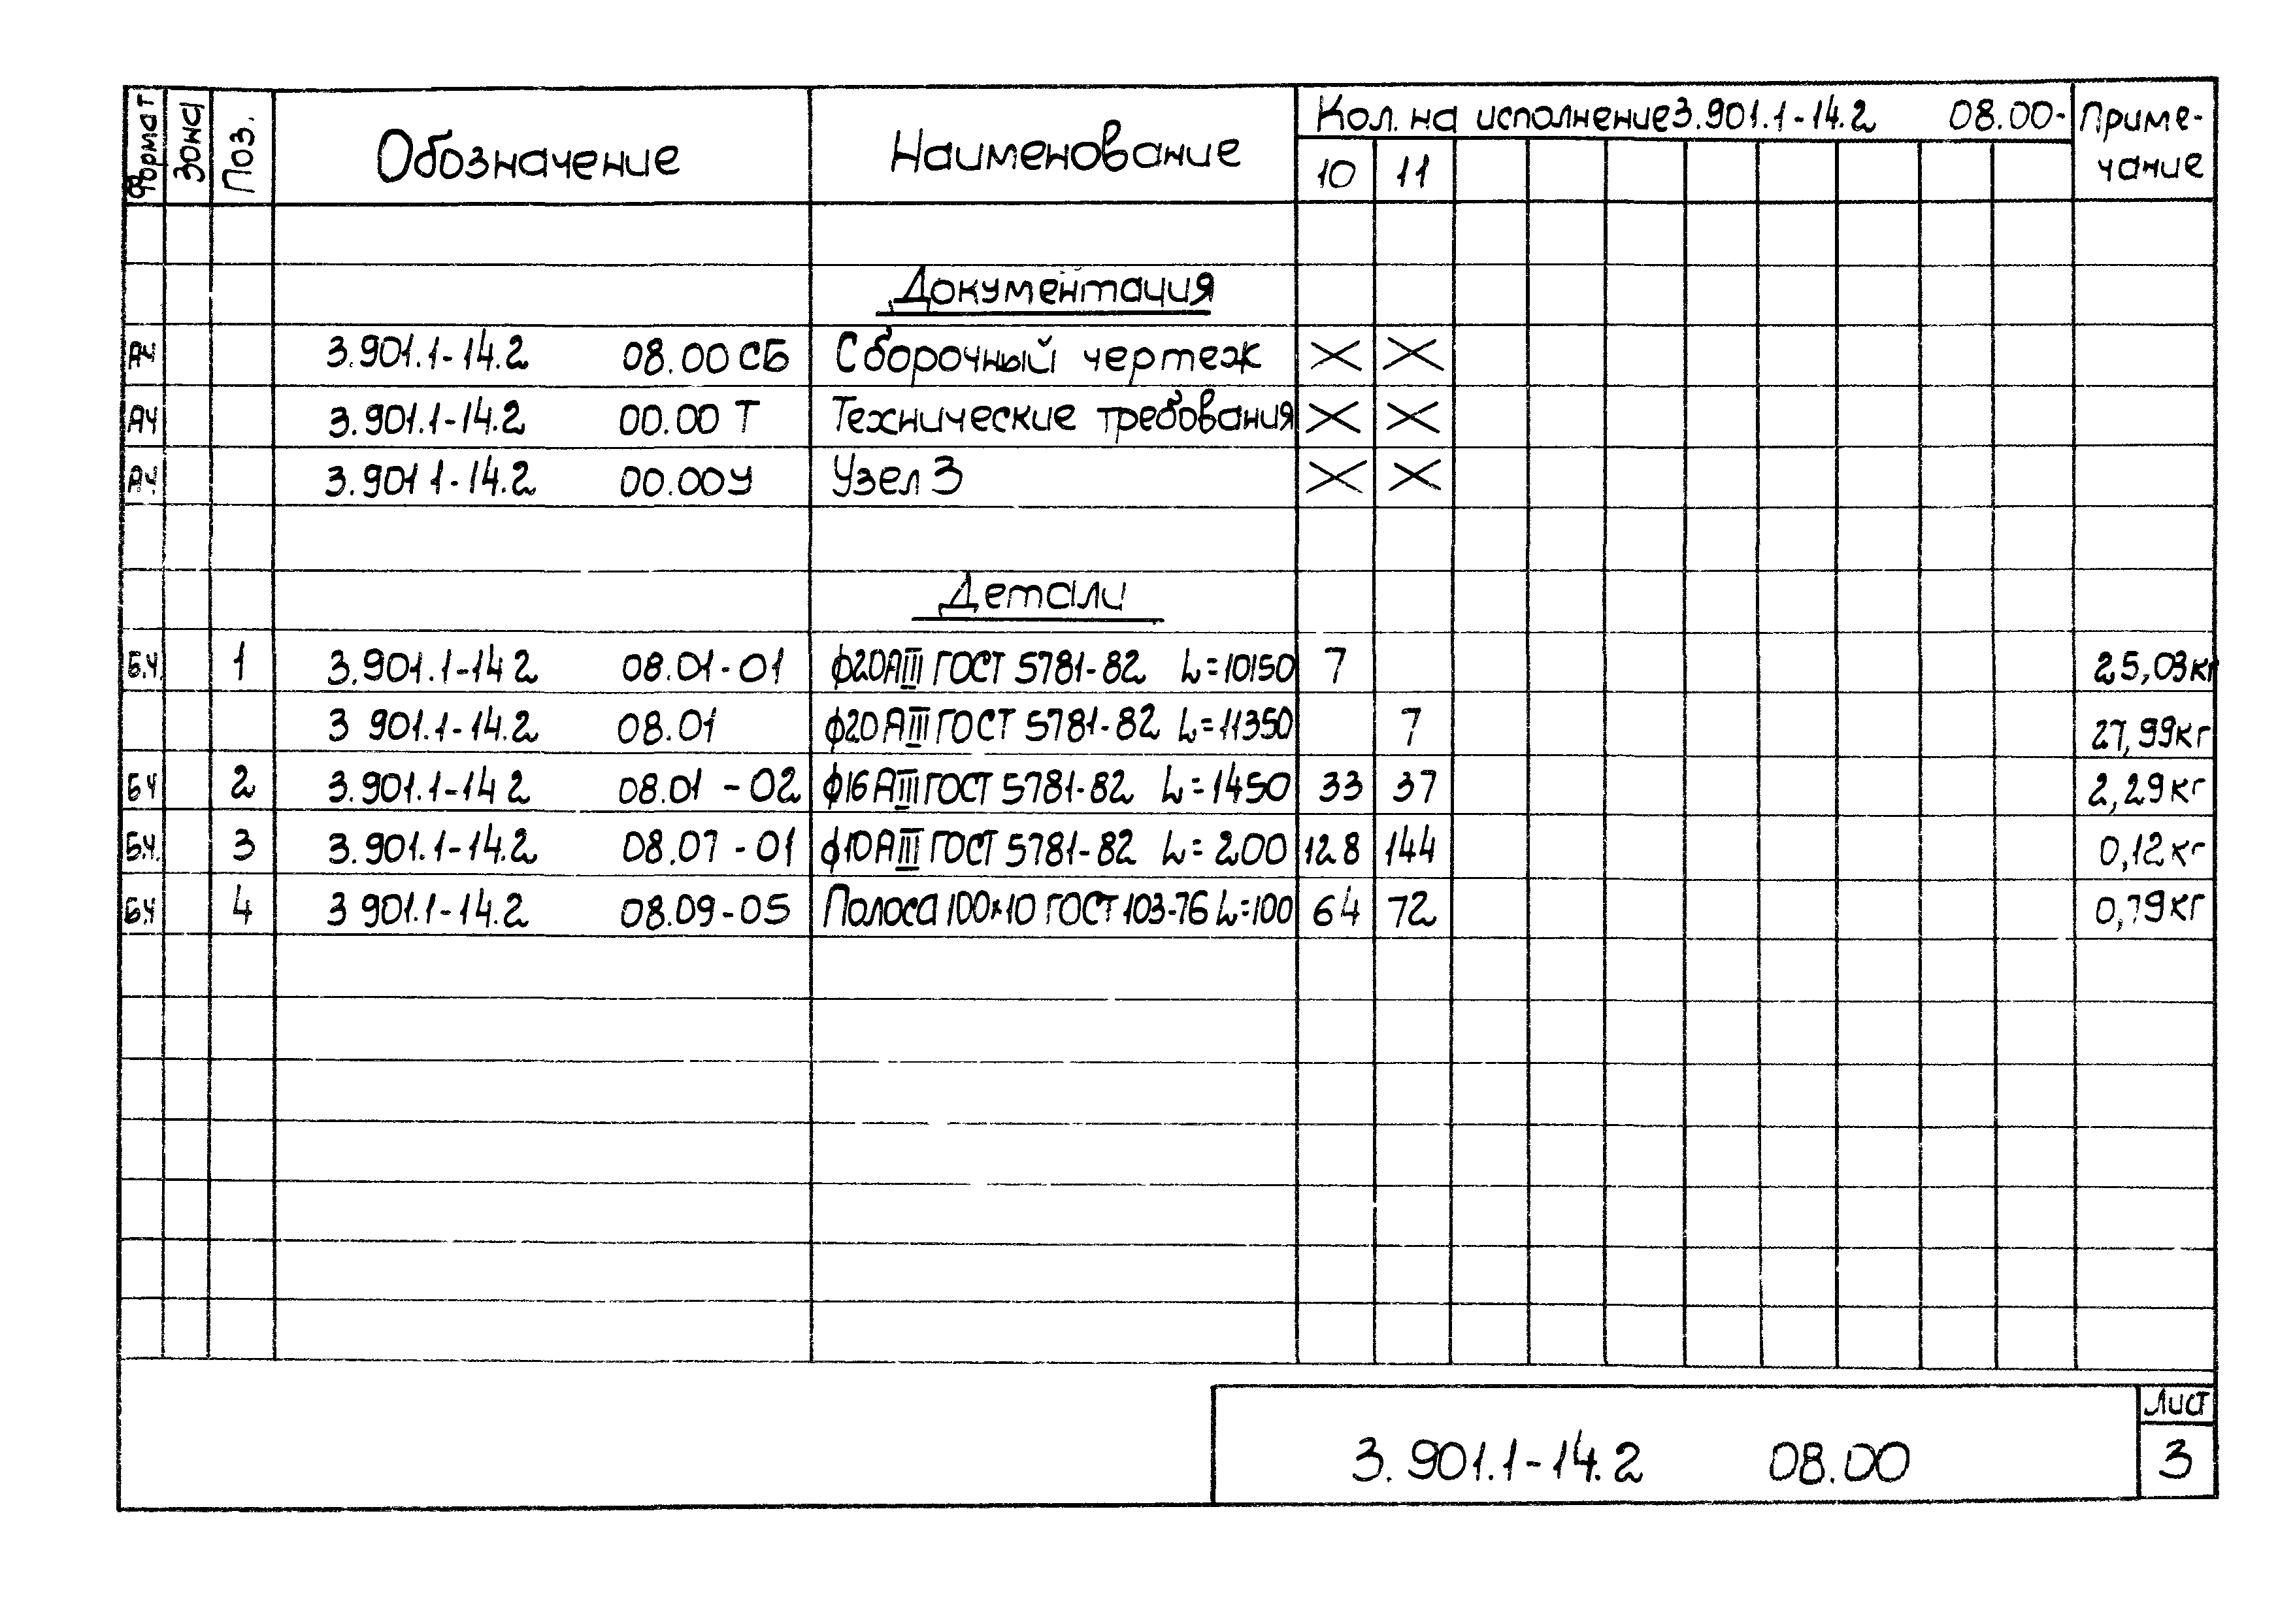 Формат Зона Поз. Обозначение Наименование Кол. на исполнение 3.901.1-14.2 08.00- Приме-
чание
10 11
Документация
А4 3.901.1-14.2 08.00 СБ Сборочный чертеж X X
А4 3.901.1-14.2 00.00 Т Технические требования X X
А4 3.901 1-14.2 00.00У Узел 3 X X
Детали
Б.Ч 1 3.901.1-14 2 08.01-01 ф20АIII ГОСТ 5781-82 L=10150 7 25,03кг
3 901.1-14.2 08.01 ф20АIII ГОСТ 5781-82 L=11350 7 27,99кг
БЧ 2 3.901.1-14 2 08.01 -02 ф16АIII ГОСТ 5781-82 L=1450 33 37 2,29кг
Б.Ч. 3 3.901.1-14.2 08.07 -01 ф10АIII ГОСТ 5781-82 L=200 128 144 0,12кг
Б.Ч 4 3 901.1-14.2 08.09-05 Полоса 100×10 ГОСТ 103-76 L=100 64 72 0,79кг
Лист
3.901.1-14.2 08.00 3